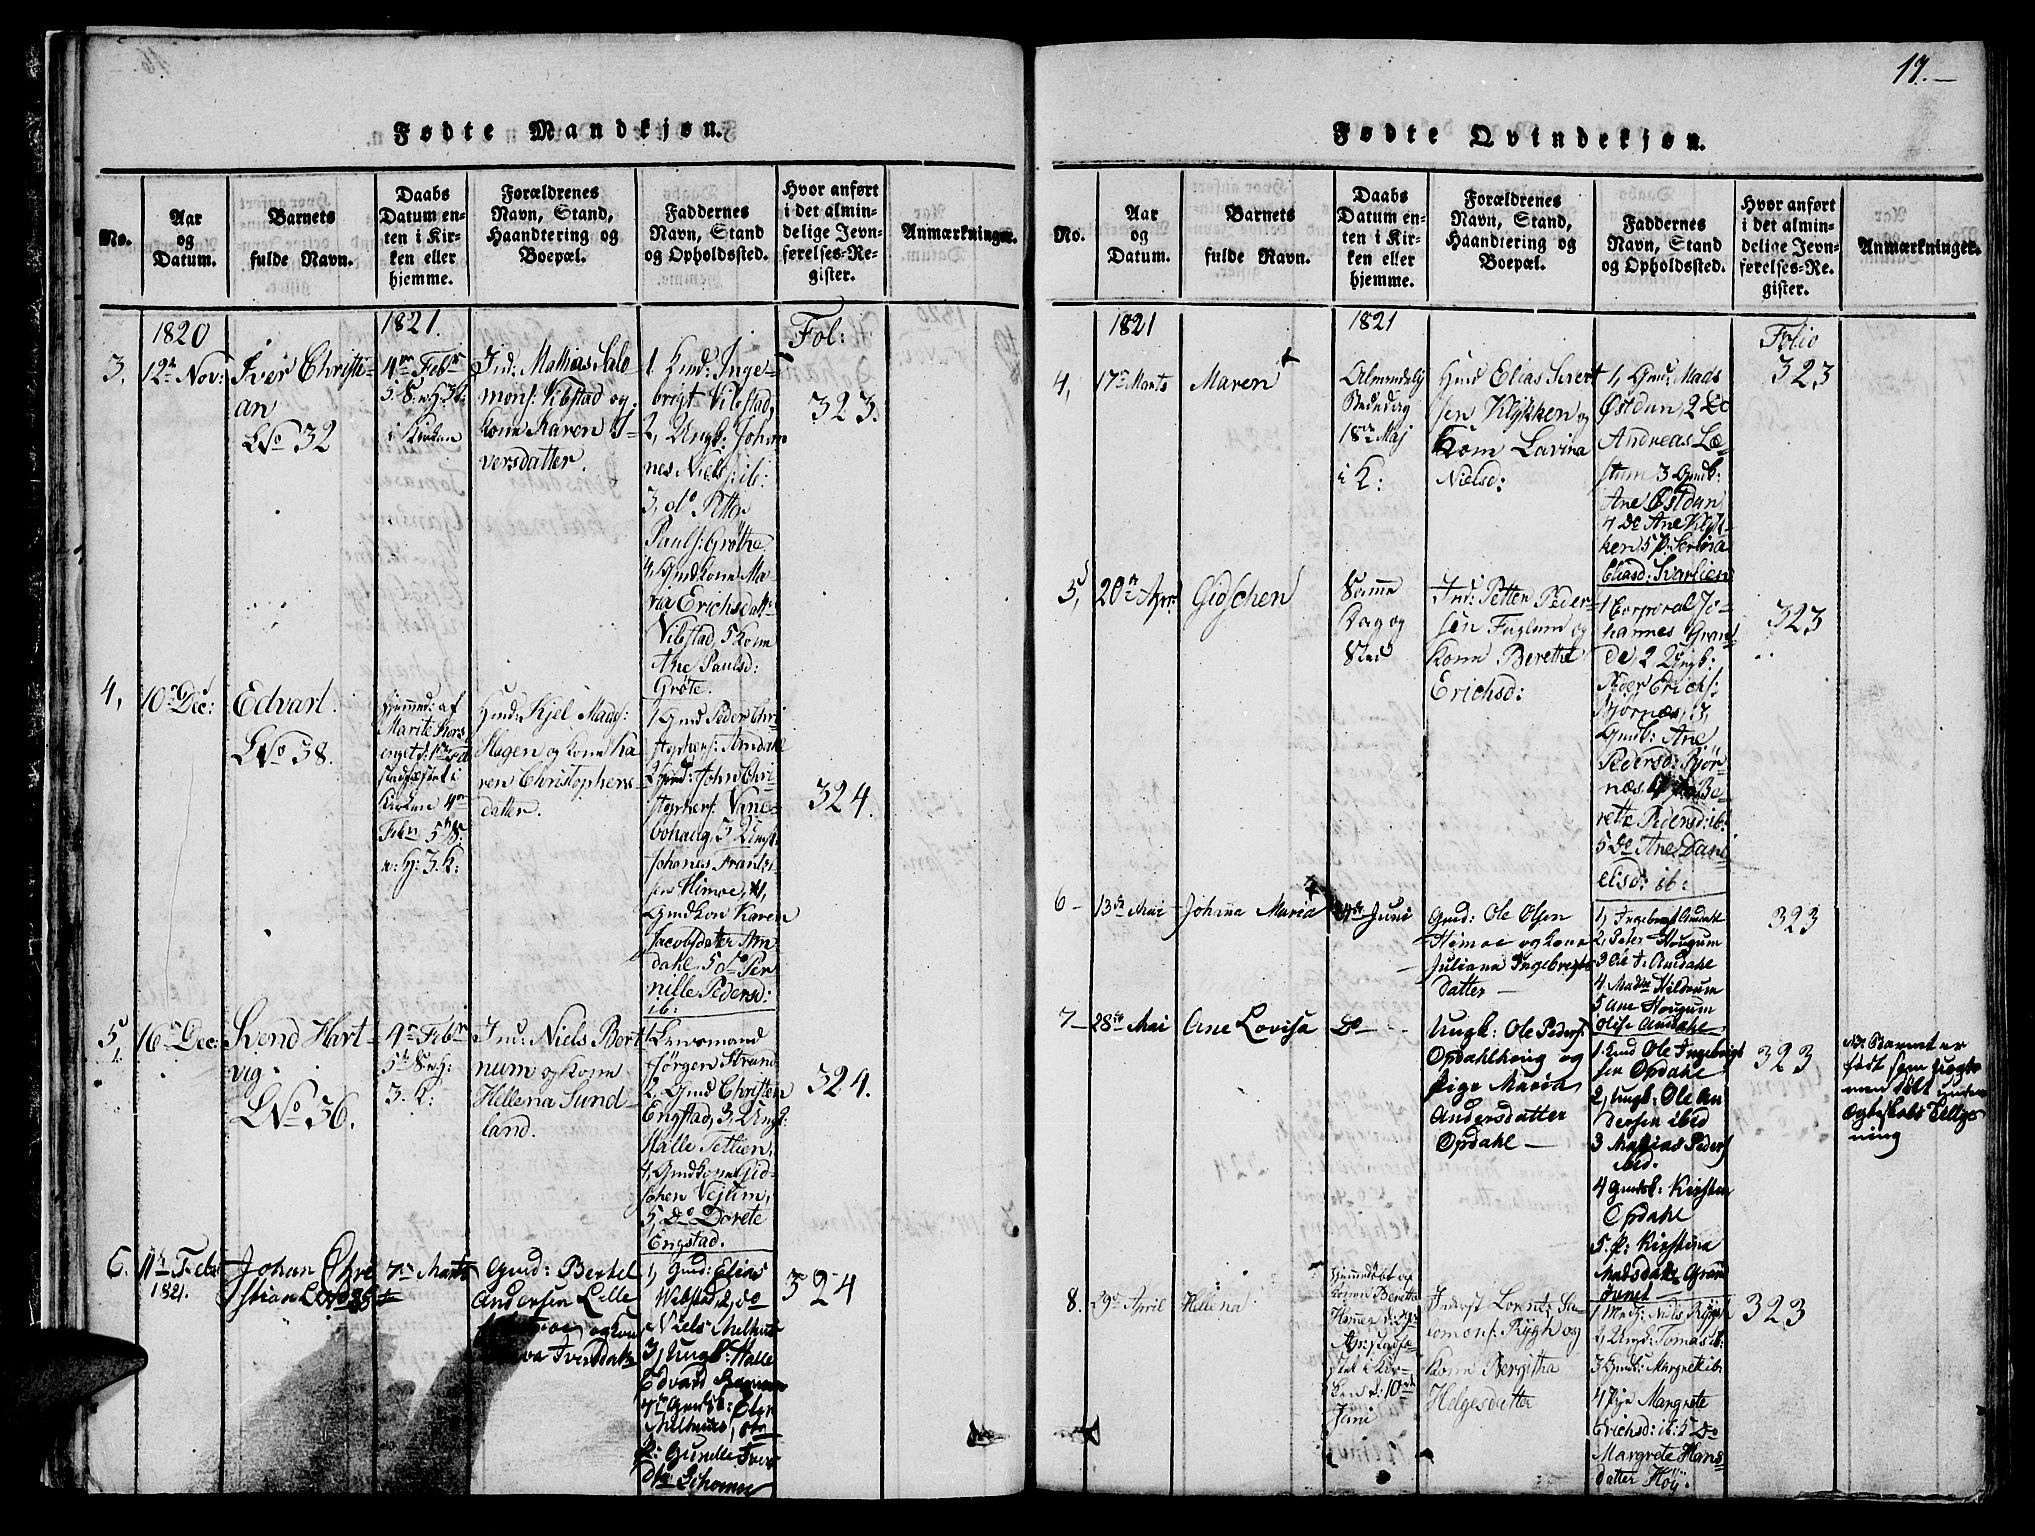 17.
Fødte Mandkjøn.
No.
Aar
og
Datum.
Barnets
fulde Navn.
Daabs
Datum en-
ten i Kir-
ken eller
hjemme.
Forældrenes
Navn, Stand,
Haandtering og
Boepæl.
Faddernes
Navn, Stand
og Opholdssted.
Hvor anført
i det almin-
delige Jevn-
førelses-Re-
gister.
Anmærkninger.
1820
3. 12te Nov:
Iver Christi-
an
LNo 32
1821.
4de Febr
i Kirken
Ind: Mathias Salo-
mons: Vibstad og
Kone Karen I-
versdatter.
1 Gmd: Inge-
brigt Vibstad,
2, Ungk: Johan-
nes Niels: ib:
3, do Petter
Pauls: Grøtte
4, Gmdkone Ma-
ria Erichsdatt:
Vibstad, 5 Kone
Ane Paulsd:
Grøte.
Fol:
323.
4, 10de Dec:
Edvart.
LNo 38.
hjemmed: af
Marite Kors-
stadfæstet i
Kirken 4de
Febr 5te S.
e: H: 3. K:
Hmd: Kjel Mads:
Hagen og Kone Ka-
ren Christophers-
datter.
1 Gmd Peder Chri-
stophers: Amdahl
2 Gmd: John Chri-
stophers: Vine-
bohaug, 3, Ungk:
Johanes Frants-
sen Himoe, 4,
Gmdkon Karen
Jacobsdatter Am-
dahl, 5 do Per-
nille Pedersd:
ib:
324.
5, 16de Dec:
Svend Hart-
vig.
LNo 36.
4de Febr
5te S: e: H:
3. K:
Ind: Niels Bert-
num og Kone
Hellena Sund-
land.
1 Lensmand
Jørgen Strand
2. Gmd Christen
Engstad, 3, Ungk:
Halle Tetlien,
4, Gmdkone Gid-
schen Vejtim,
5, Do Dorete
Engstad.
324.
6. 11te Febr
1821.
Johan Chri
stian
7de Marts
Gmd: Bertel
Andersen Lille
og Kone
Iversdatt
1, Gmd: Elias
Webstad, 2, do
Niels Melhuus
3, Ungk: Halle
Edvard
Melhuus,
P: Gunelle Iver
324
Fødte Qvindekjøn.
No.
Aar
og
Datum.
Barnets
fulde Navn.
Daabs
Datum en-
ten i Kir-
ken eller
hjemme.
Forældrenes
Navn, Stand,
Haandtering og
Boepæl.
Faddernes
Navn, Stand
og Opholdssted.
Hvor anført
i det almin-
delige Jevn-
førelses-Re-
gister.
Anmærkninger.
1821
4, 17de Marts
Maren
1821
Almindelig
Bededag
18de Maj
i K:
Hmd Elias Sivert
sen Klykken og
Kone Lavina
Nielsd:
1, Gmd: Mads
Østdun, 2 Do
Andreas Læ-
stum 3 Gmdk:
Ane Østdun
4 Do Ane Klyk-
ken 5 P: Serina
Eliasd: Svarlien
Folio
323
5, 20de Apr:
Gidschen
Samme
Dag og
Sted
Ind: Petter Peder-
sen Fuglum og
Kone Berethe
Erichsd:
1 Corporal Jo-
hannes Gran-
de, 2, Ungk:
Peder Erichs:
Bjørnæs, 3,
Gmdk: Ane
Pedersd: Bjør-
næs 4 Be-
rette Pedersd: ib:
5 Do Ane Dani
elsd: ib:
323
6 - 13de Mai
Johana Maria
4de Juni
Gmd: Ole Olsen
Himoe og Kone
Juliana Ingebrigts
datter
1, Ingebrigt Amdahl
2, Peter Hougum
3 Ole I. Amdahl
4 Madm Hildrum
5 Ane Hougum
Olise Amdahl
323
7 - 28de Mai
Ane Lovisa
Do
Ungk: Ole Peders
Opdahlkrig og
Pige Maria
Andersdatter
Opdahl
1. Gmd Ole Ingebrigt
sen Opdahl
2, Ungk: Ole An
dersen ibid
3 Mathias Peders
ibid.
4 Gmdsk: Kirsten
Opdahl
5. P: Kirstina
Madsdatt Grøn
323
Barnet er
født som uægte
men døbt under
Ægteskabs Tillys
ning
8. 29de April
Hellena
Hjemmedøbt af
Konen Beretha
stet i Kir-
ken d: 10de
Juni
Inderst Lorents Sa-
lomons: Rygh og
Kone Bergitha
Helgesdatter
1 Gmd: Niels Rygh
2, Ungk: Tomas ib:
3 Gmdk: Margret ib:
4 Pige Margrete
Erichsd: ib: 5 Do
Margrete Hans-
datter Høy.
323